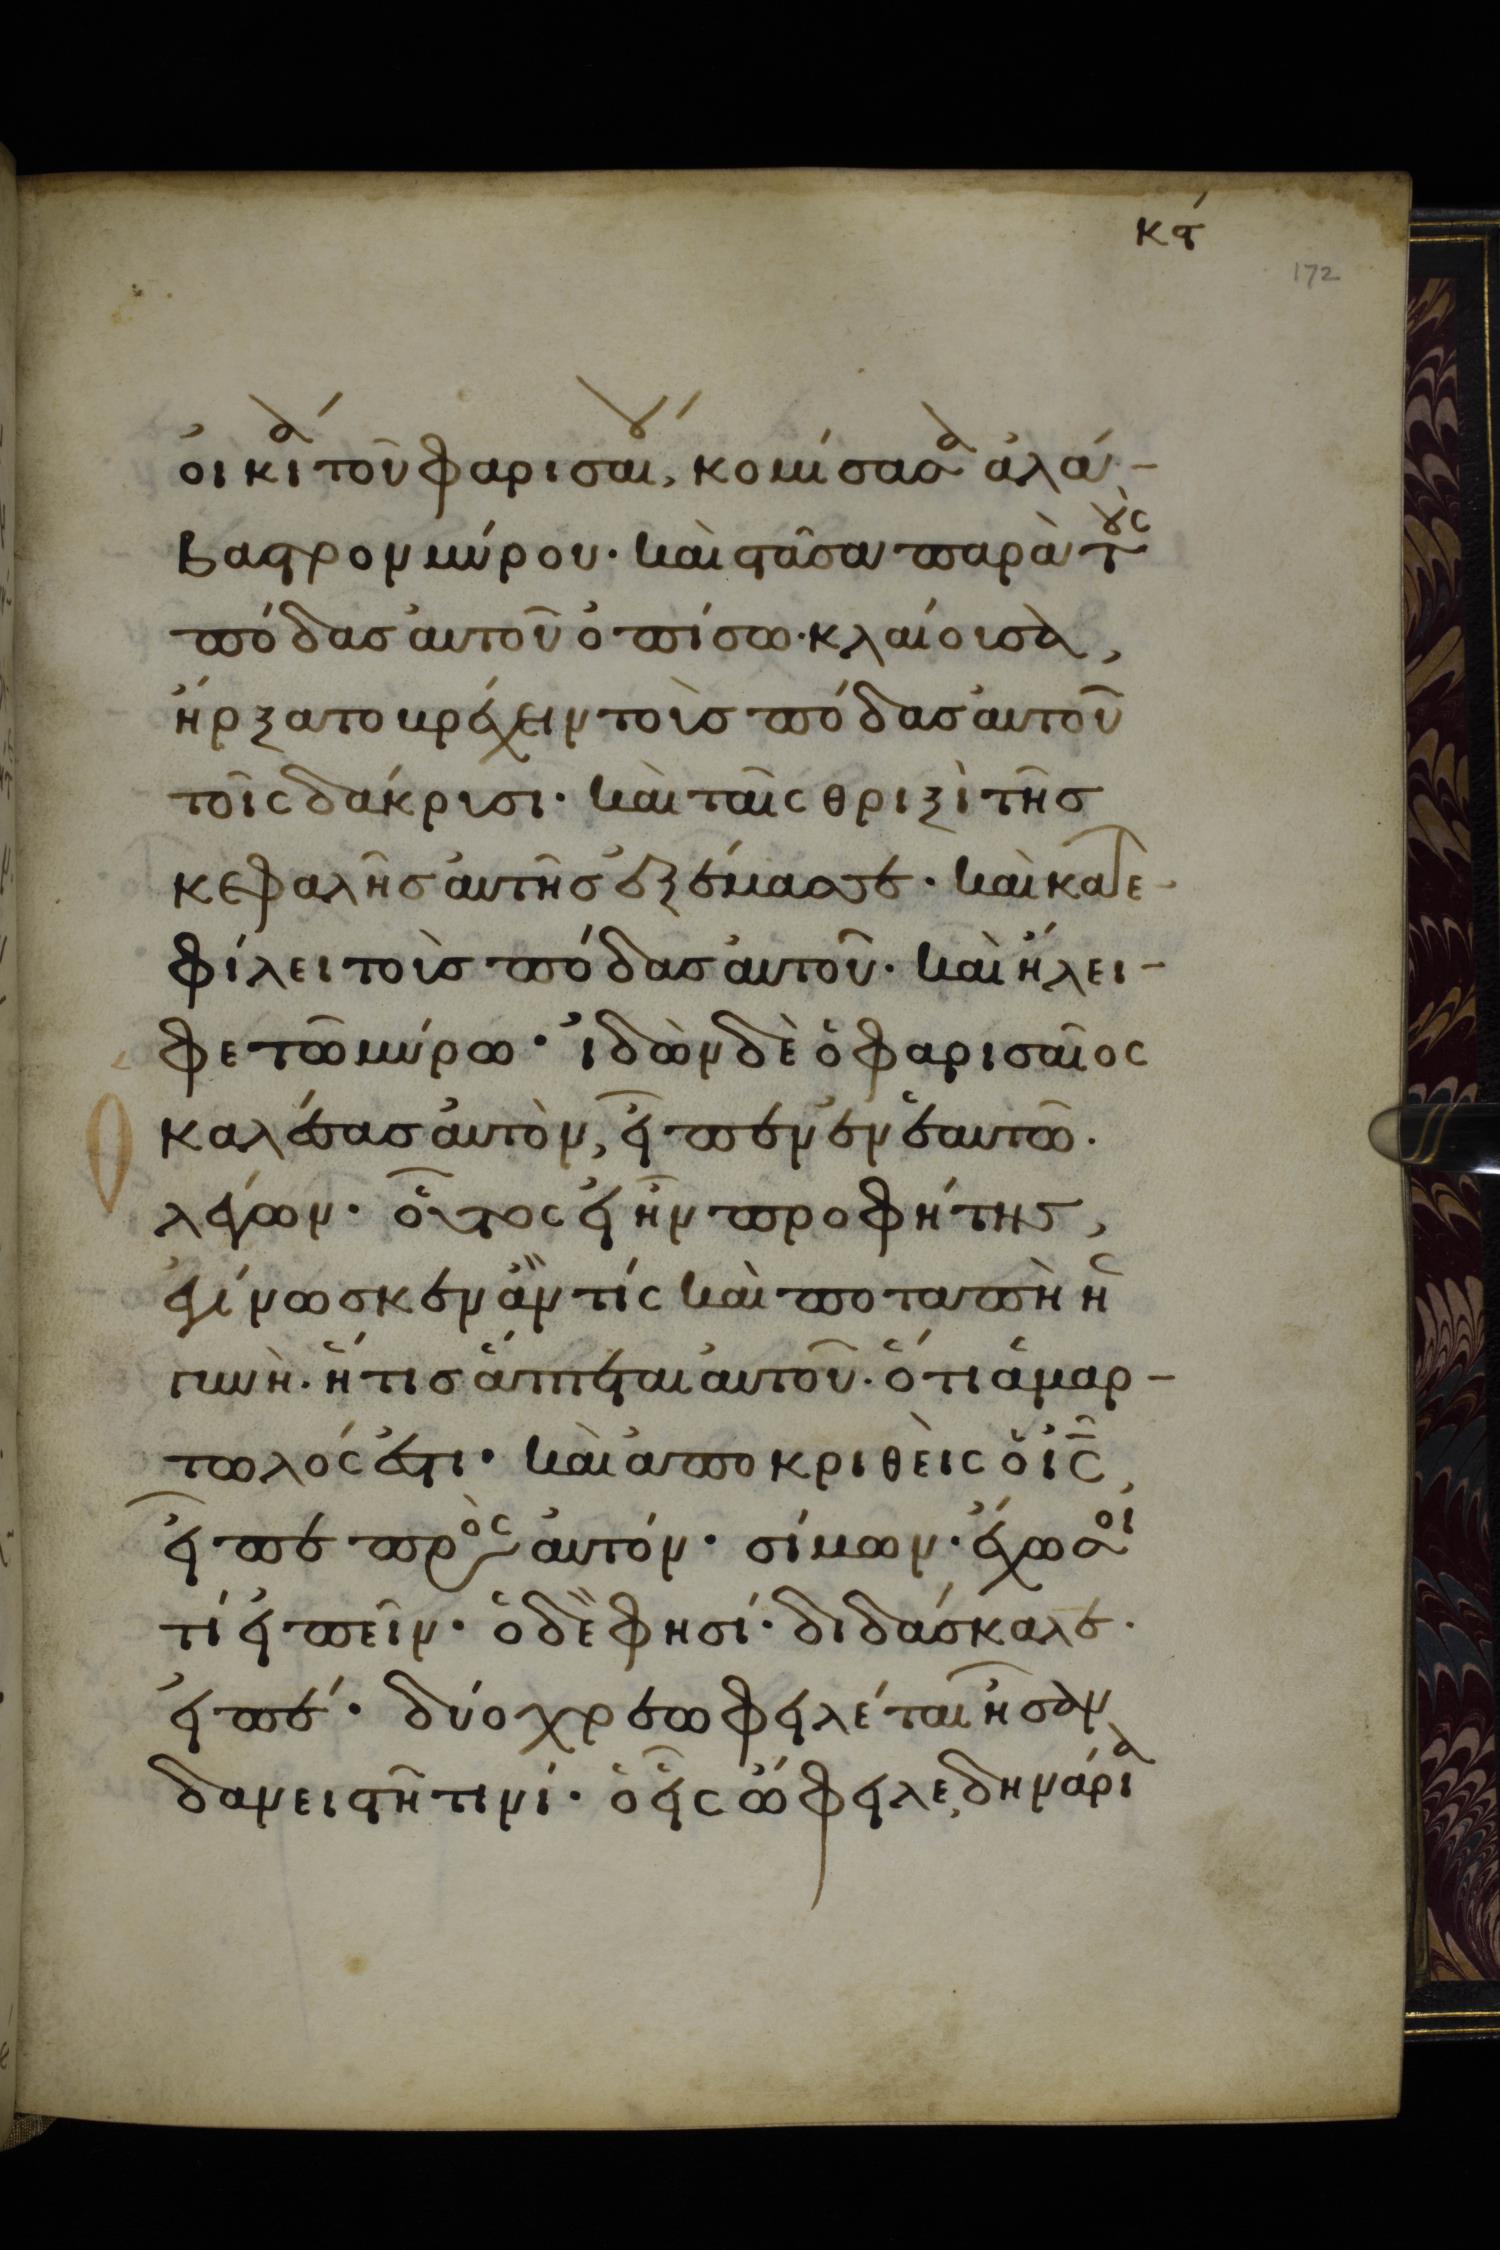 κϛʹ
172
οἰκίᾳ τοῦ φαρισαίου, κομίσασα ἀλά-
βαστρον μύρου· καὶ στᾶσα παρὰ τοὺς
πόδας αὐτοῦ ὀπίσω· κλαίουσα,
ἤρξατο βρέχειν τοὺς πόδας αὐτοῦ
τοῖς δάκρυσι· καὶ ταῖς θριξὶ τῆς
κεφαλῆς αὐτῆς ἐξέμασσε· καὶ κατε-
φίλει τοὺς πόδας αὐτοῦ· καὶ ἤλει-
φε τῶ μύρω· ἰδὼν δὲ ὁ φαρισαῖος
ὁ καλέσας αὐτὸν, εἶπεν ἐν ἑαυτῶ·
λέγων· οὗτος εἰ ἦν προφήτης,
ἐγίνωσκεν ἂν τίς καὶ ποταπὴ ἡ
γυνὴ· ἥτις ἅπτεται αὐτοῦ· ὅτι ἁμαρ-
τωλός ἐστι· καὶ ἀποκριθεὶς ὁ ἰς,
εἶπε πρὸς αὐτόν· σίμων· ἔχω σοί
τί εἰπεῖν· ὁ δὲ φησί· διδάσκαλε·
εἰπέ· δύο χρεωφειλέται ἦσαν
δανειστῆ τινί· ὁ εἷς ὤφειλε, δηνάρια